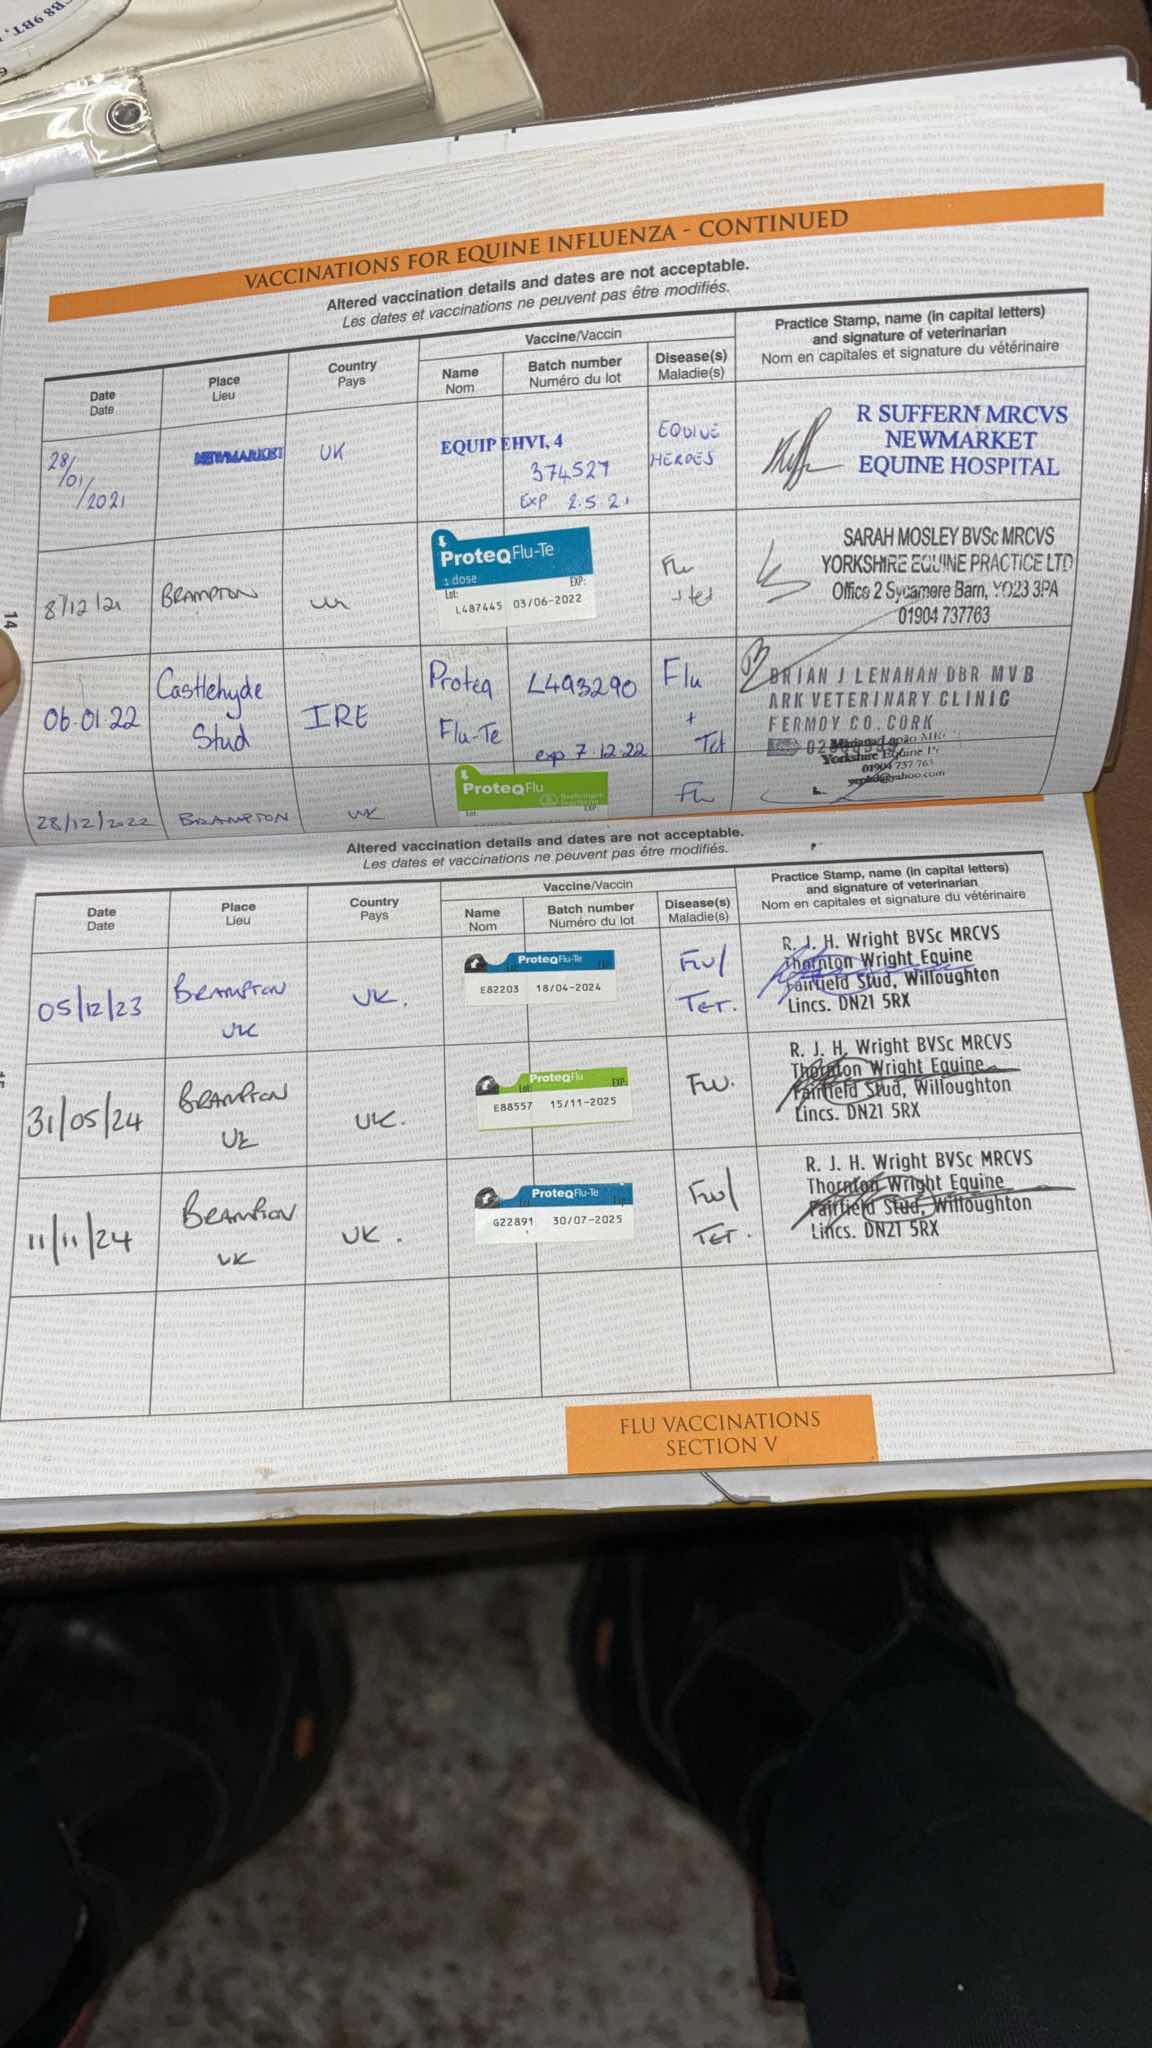 CB8 9BT,
VACCINATIONS FOR EQUINE INFLUENZA - CONTINUED
Altered vaccination details and dates are not acceptable.
Les dates et vaccinations ne peuvent pas être modifiés.
Date
Date
Place
Lieu
Country
Pays
Vaccine/Vaccin
Name
Nom
Batch number
Numéro du lot
Disease(s)
Maladie(s)
Practice Stamp, name (in capital letters)
and signature of veterinarian
Nom en capitales et signature du vétérinaire
28/
/01
/2021
NEWMARKET
UK
EQUIP EHV1,4
374527
EXP 2.5.21
EQUINE
HERPES
R SUFFERN MRCVS
NEWMARKET
EQUINE HOSPITAL
8/12/21
BRAMPTON
UK
ProteqFlu-Te
1 dose
Lot:
EXP:
L487445 03/06-2022
Flu
+ tet
SARAH MOSLEY BVSc MRCVS
YORKSHIRE EQUINE PRACTICE LTD
Office 2 Sycamore Barn, YO23 3PA
01904 737763
14
06.01.22
Castlehyde
Stud
IRE
Proteq
Flu-Te
L493290
exp 7.12.22
Flu
+
Tet
BRIAN J LENAHAN DBR MVB
ARK VETERINARY CLINIC
FERMOY CO.CORK
Yorkshire Equine
01904 737 763
28/12/2022
BRAMPTON
UK
ProteqFlu
Lot:
EXP
Flu
Altered vaccination details and dates are not acceptable.
Les dates et vaccinations ne peuvent pas être modifiés.
Date
Date
Place
Lieu
Country
Pays
Vaccine/Vaccin
Name
Nom
Batch number
Numéro du lot
Disease(s)
Maladie(s)
Practice Stamp, name (in capital letters)
and signature of veterinarian
Nom en capitales et signature du vétérinaire
05/12/23
BRAMPTON
UK
UK.
ProteqFlu-Te
E82203 18/04-2024
FLU/
TET.
R. J. H. Wright BVSc MRCVS
Thornton Wright Equine
Fairfield Stud, Willoughton
Lincs. DN21 5RX
31/05/24
BRAMPTON
UK
UK.
ProteqFlu
Lot:
EXP:
E88557 15/11-2025
FLU.
R. J. H. Wright BVSc MRCVS
Thornton Wright Equine
Fairfield Stud, Willoughton
Lincs. DN21 5RX
11/11/24
BRAMPTON
UK
UK.
ProteqFlu-Te
G22891 30/07-2025
FLU/
TET.
R. J. H. Wright BVSc MRCVS
Thornton Wright Equine
Fairfield Stud, Willoughton
Lincs. DN21 5RX
FLU VACCINATIONS
SECTION V